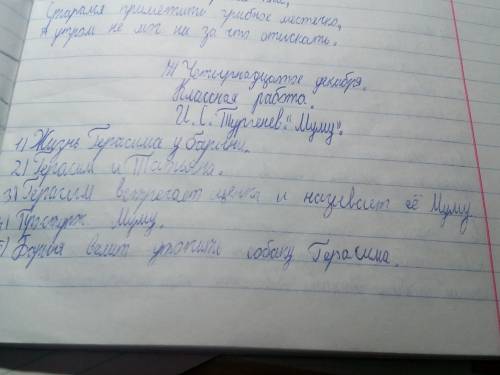 Старался приметить грибное местечко,
А утром не мог ни за что отыскать.
Четырнадцатое декабря.
Классная работа.
И. С. Тургенев. "Муму".
1) Жизнь Герасима у барыни.
2) Герасим и Татьяна.
3) Герасим встречает щенка и называет её Муму.
4) Муму.
5) Барыня велит утопить собаку Герасима.